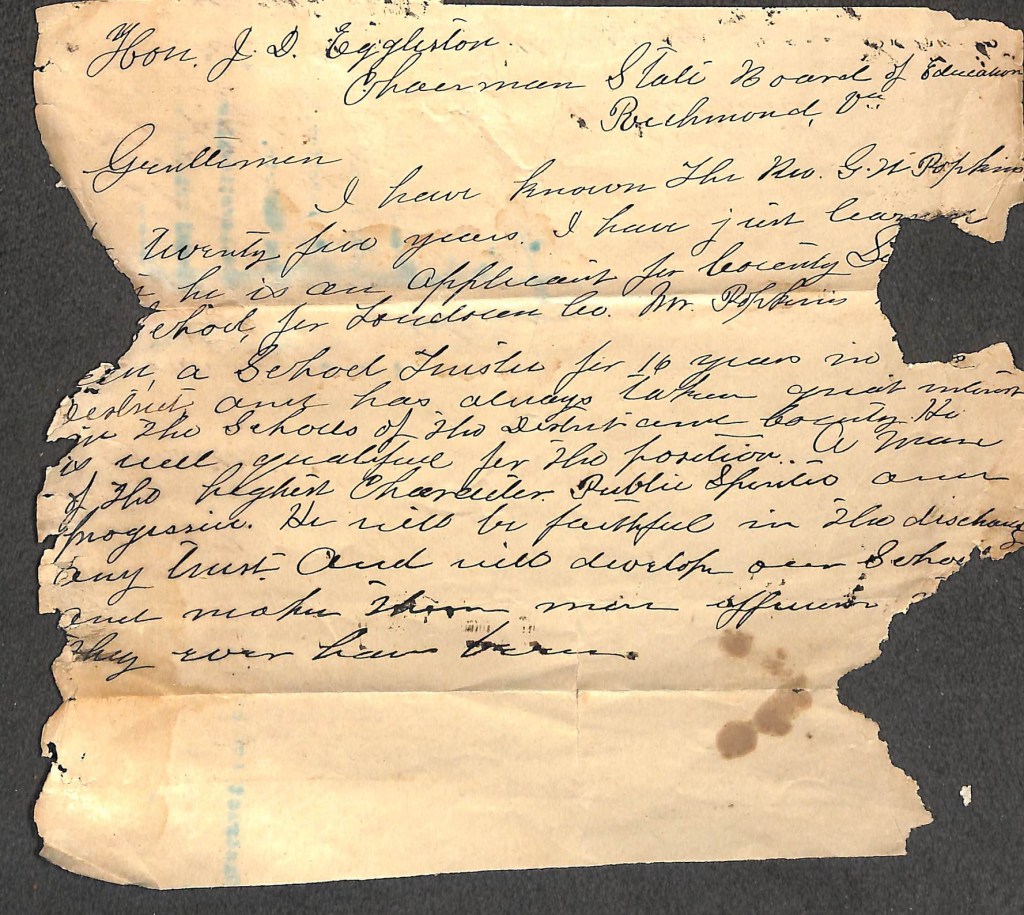 Hon. J. D. Eggleston.
Chairman State Board of Education
Richmond, Va
Gentlemen
I have known The Rev. G. W Popkins
twenty five years. I have just
he is an applicant for County
for Loudoun Co. Mr. Popkins
a School Trustee for 16 years in
District, and has always taken great interest
in The Schools of The District and County. He
is well qualified for The position. A Man
of The highest Character Public Spirited and
progressive. He will be faithful in The discharge
any trust. And will develop our
and make Them more efficient
They ever have been.